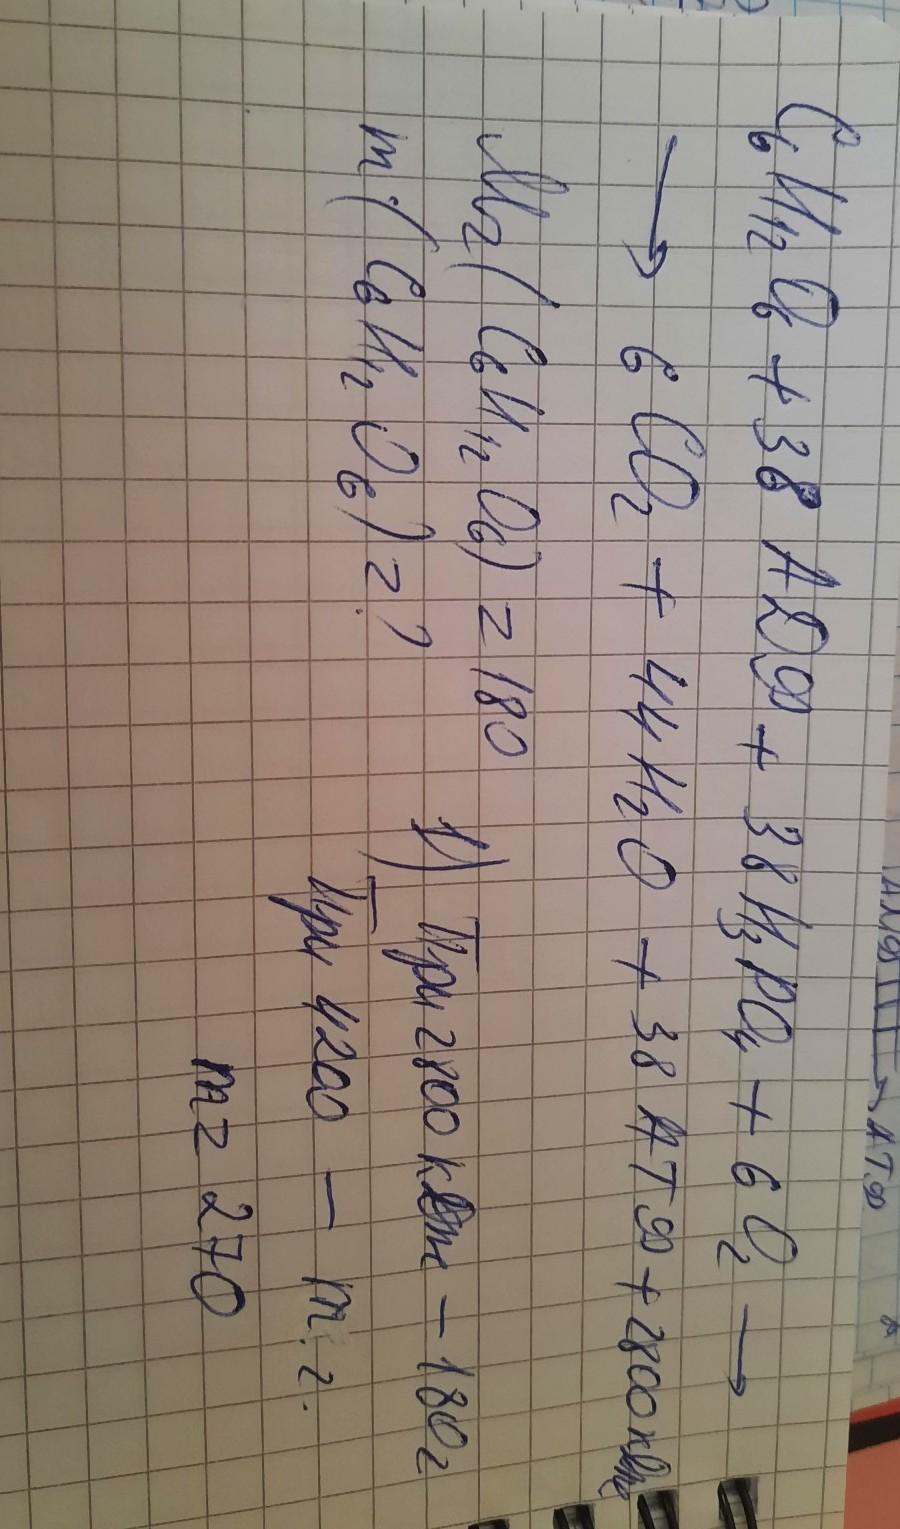 C₆H₁₂O₆ + 38 АДФ + 38 H₃PO₄ + 6O₂ →
→ 6CO₂ + 44H₂O + 38 АТФ + 2800 кДж
Mr(C₆H₁₂O₆) = 180
m(C₆H₁₂O₆) = ?
1) При 2800 кДж – 180г
При 4200 – m г.
m = 270
→ АТФ